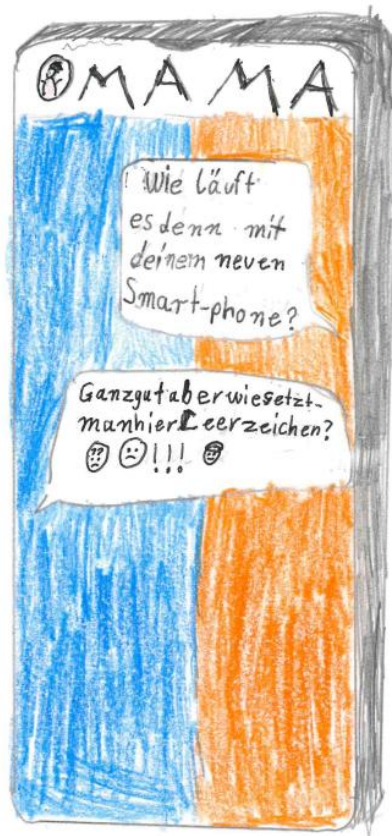 MAMA
Wie läuft
es denn mit
deinem neuen
Smart-phone?
Ganzgutaberwiesetzt-
manhierLeerzeichen?
!!!